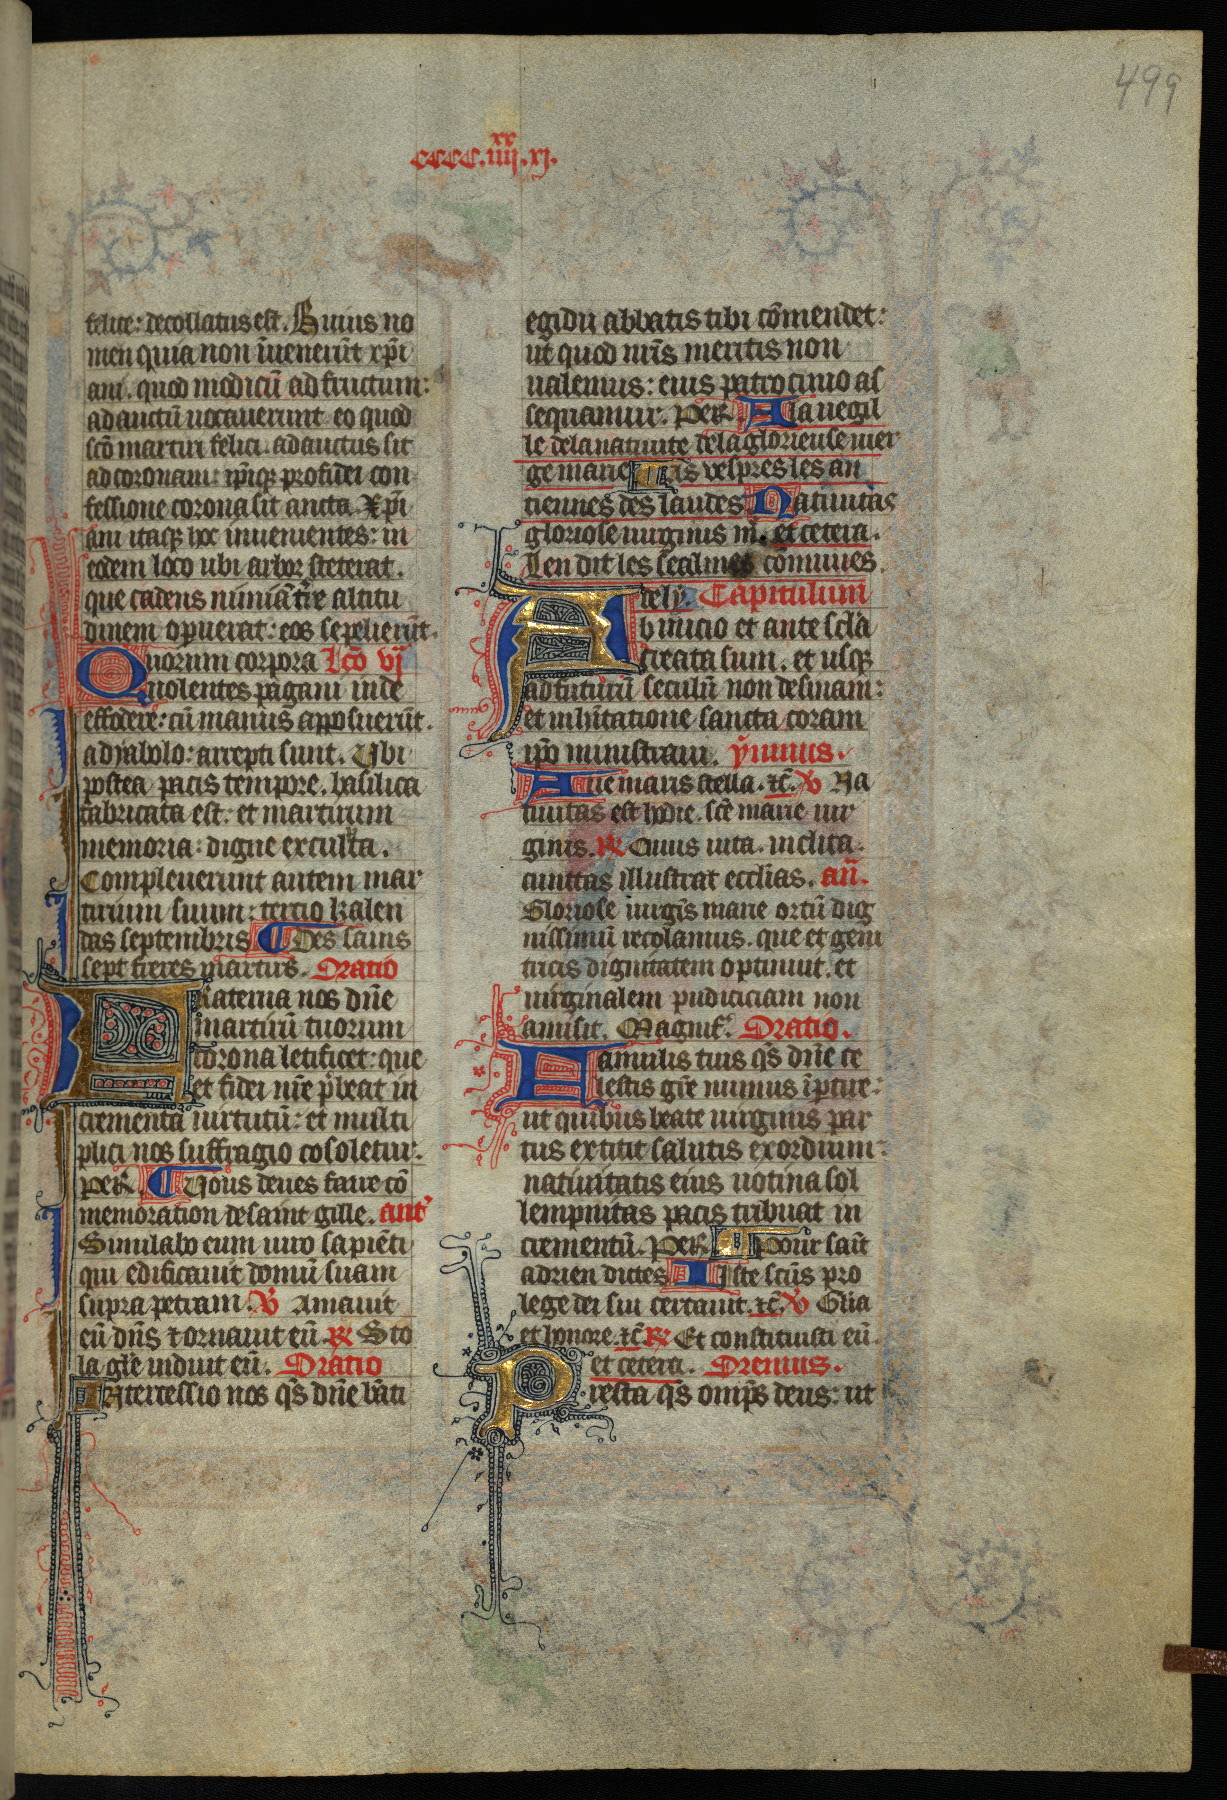 499
xx
CCCC.iiij.xj.
felice: decollatus est. Huius no
men quia non īuenerūt xp̄i
ani. quod modicū ad fructum:
adauctū uocauerunt eo quod
scō martiri felici. adauctus sit
ad coronam: ip̄iq; profidei con
fessione corona sit aucta. Xp̄i
ani itaq; hoc inuenientes: in
eodem loco ubi arbor steterat.
que cadens nimiā terre altitu
dinem opuerat: eos sepelierūt.
Quorum corpora Lc̄o vj
uolentes pagani inde
effodere: cū manus apposuerūt.
a dyabolo: arrepti sunt. Vbi
postea pacis tempore. basilica
fabricata est. et martirum
memoria: digne exculta.
Compleuerunt autem mar
tirium suum: tercio kalen
das septembris Des sains
sept freres martirs. Oratio
Fraterna nos dn̄e
martirū tuorum
corona letificet: que
et fidei nr̄e p̄beat in
crementa uirtutū: et multi
plici nos suffragio cōsoletur.
Per. Vous deues faire cō
memoration de saint gille. ant'
Similabo eum uiro sapiēti
qui edificauit domū suam
supra petram. V̄ Amauit
eū dn̄s et ornauit eū. R̄ Sto
la gl̄e induit eū. Oratio
Intercessio nos q̄s dn̄e bāti
egidii abbatis tibi cōmendet:
ut quod nr̄is meritis non
ualemus: eius patrocinio as
sequamur. Per. A la uegil
le de la natiuite de la glorieuse vier
ge marie As vespres les an
tiennes des laudes Natiuitas
gloriose uirginis m̄. et cetera.
Len dit les sēalmes cōmunes.
dely. Capitulum
Ab inicio et ante sc̄la
creata sum. et usq;
ad futurū seculū non desinam:
et in hītatione sancta coram
ip̄o ministraui. ȳmnus.
Aue maris stella. etc̄. V̄ Na
tiuitas est hodie. sc̄e marie uir
ginis. R̄ Cuius uita. inclita.
cunctas illustrat eccl̄ias. an̄.
Gloriose uirgīs marie ortū dig
nissimū recolamus. que et geni
tricis dignitatem optinuit. et
uirginalem pudiciciam non
amisit. Magnif. Oratio.
Famulis tuis q̄s dn̄e ce
lestis gr̄e munus īptire:
ut quibus beate uirginis par
tus extitit salutis exordium:
natiuitatis eius uotiua sol
lempnitas pacis tribuat in
crementū. Per. Pour saīt
adrien dictes Iste sc̄us pro
lege dei sui certauit. etc̄. V̄ Gl̄ia
et honore. etc̄ R̄ Et constituisti eū.
et cetera. Oremus.
Presta q̄s omp̄s deus: ut